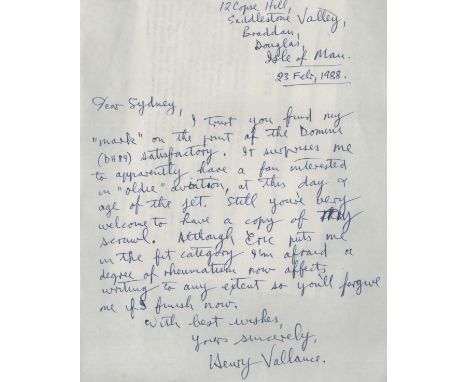 12 Copse Hill,
Saddlestone Valley,
Braddan,
Douglas,
Isle of Man.
23 Feb, 1988.
Dear Sydney,
I trust you find my
"mark" on the print of the Domine
(DH89) satisfactory. It surprises me
to apparently have a fan interested
in "oldie" aviation, at this day &
age of the jet. Still you're very
welcome to have a copy of my
scrawl. Although Eric puts me
in the fit category I'm afraid a
degree of rheumatism now affects
writing to any extent so you'll forgive
me if I finish now.
With best wishes,
Yours sincerely,
Henry Vallance.